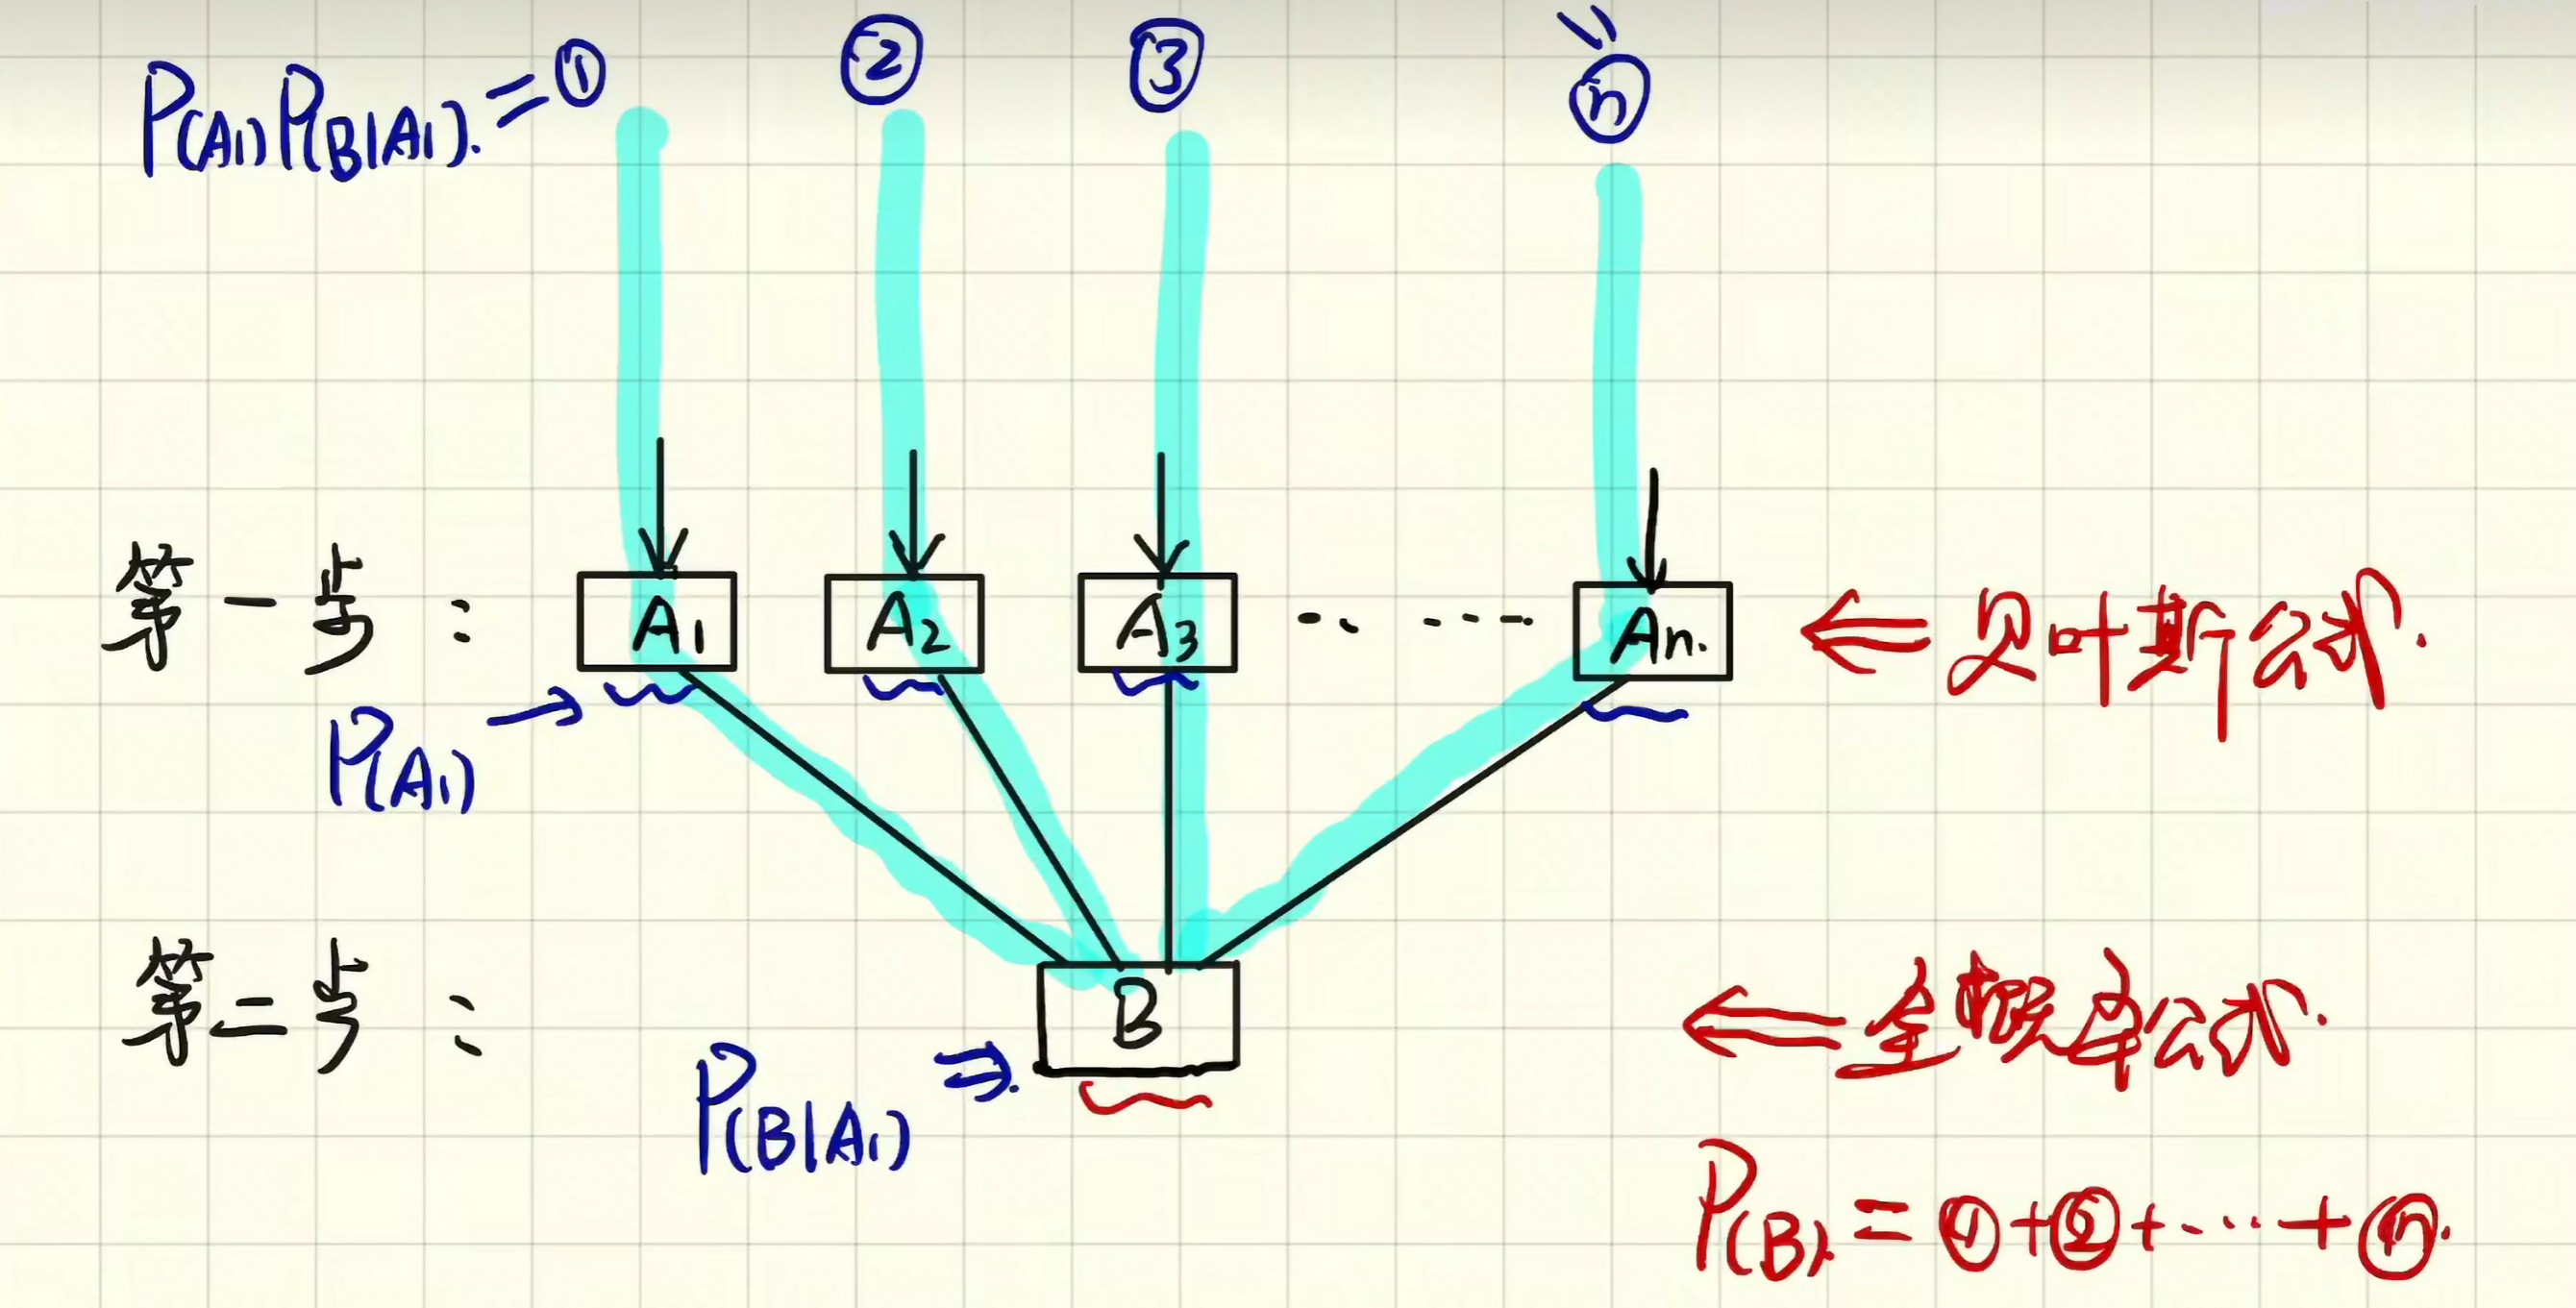 P(A1)P(B|A1).=① ② ③ ⓝ
第一步： A1 A2 A3 ······ An. ⇐ 贝叶斯公式.
P(A1) →
第二步： B ⇐ 全概率公式.
P(B|A1) ⇒
P(B)=①+②+····+ⓝ.